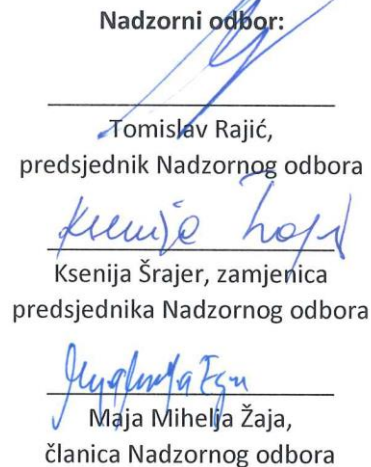 Nadzorni odbor:
Tomislav Rajić,
predsjednik Nadzornog odbora
Ksenija
Ksenija Šrajer, zamjenica
predsjednika Nadzornog odbora
Maja Mihelja Žaja,
članica Nadzornog odbora